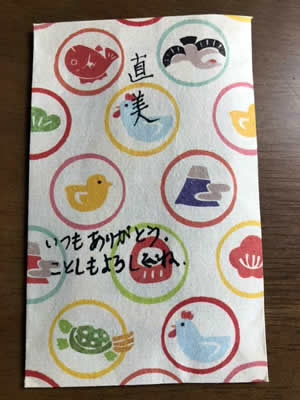 直美
いつもありがとう。
ことしもよろしくね。